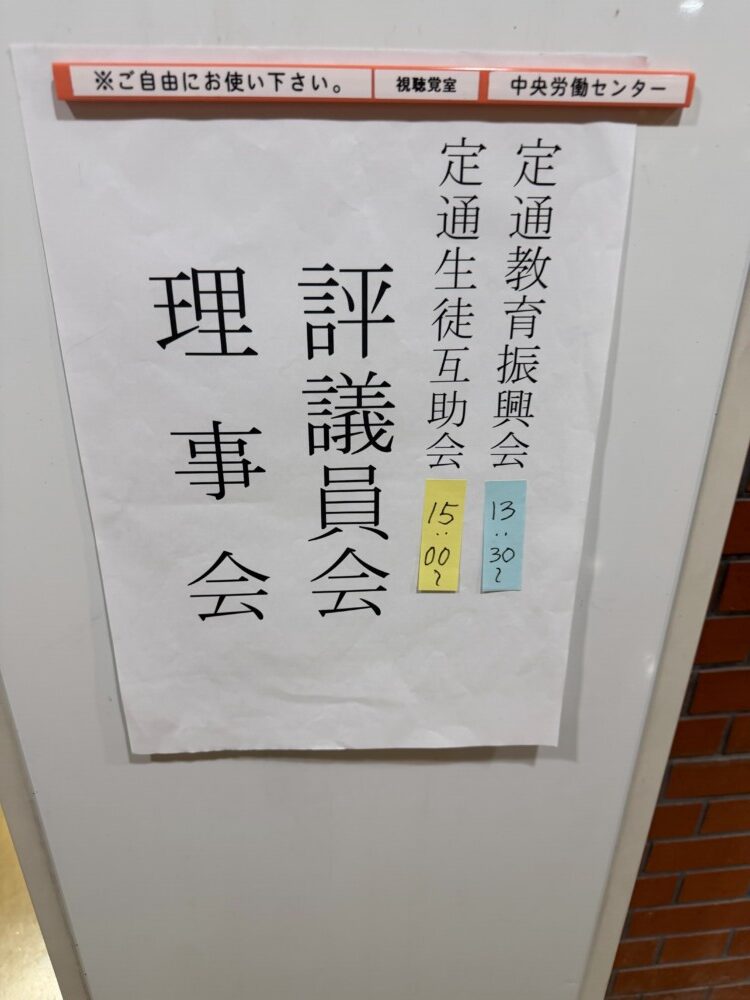 ※ご自由にお使い下さい。 視聴覚室 中央労働センター
定通教育振興会
13:30〜
定通生徒互助会
15:00〜
評議員会
理事会